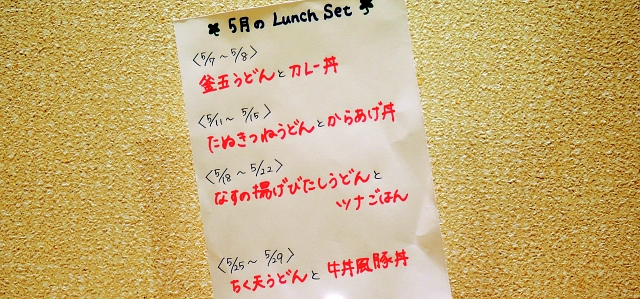 * 5月の Lunch Set *
〈5/7 ~ 5/8〉
釜玉うどんとカレー丼
〈5/11 ~ 5/15〉
たぬきつねうどんとからあげ丼
〈5/18 ~ 5/22〉
なすの揚げびたしうどんと
ツナごはん
〈5/25 ~ 5/29〉
ちく天うどんと牛丼風豚丼